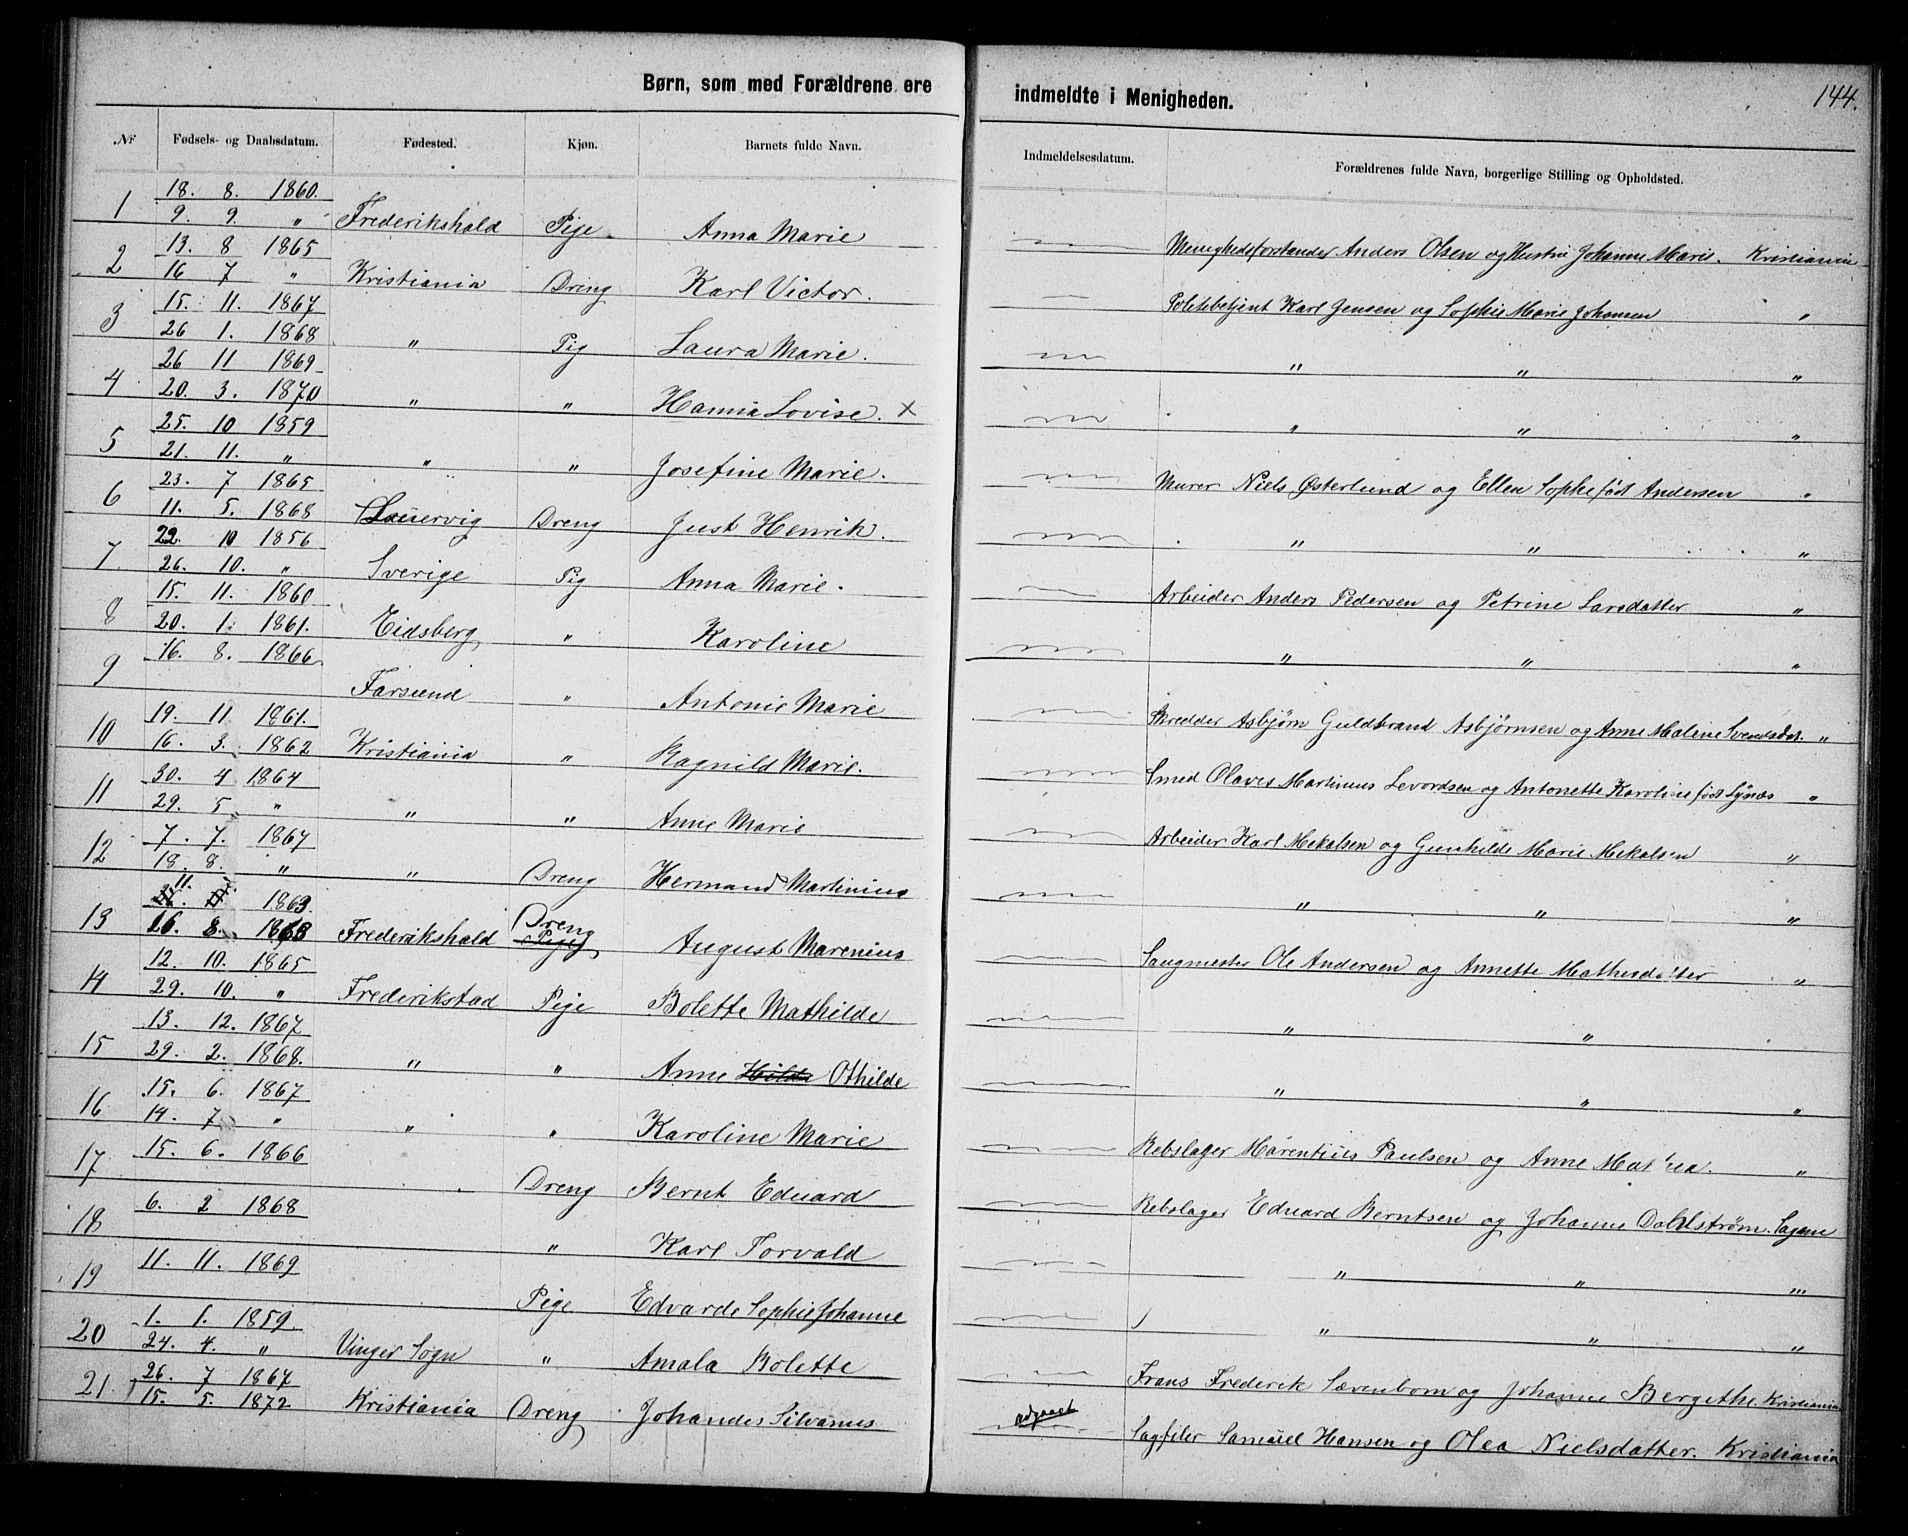 Børn, som med Forældrene ere indmeldte i Menigheden. 144.
Nr Fødsels- og Daabsdatum. Fødested. Kjøn. Barnets fulde Navn. Indmeldelsesdatum. Forældrenes fulde Navn, borgerlige Stilling og Opholdsted.
1 18. 8. 1860. 9. 9. " Frederikshald Pige Anna Marie Menighedsforstander Anders Olsen og Hustru Johanne Marie. Kristiania
2 13. 8 1865 16 7 " Kristiania Dreng Karl Victor. Politebetjent Karl Jensen og Sophie Marie Johansen "
3 15. 11. 1867 26 1. 1868 " Pig Laura Marie. " " "
4 26 11 1869 20. 3. 1870 " " Hanna Lovise. x " " "
5 25. 10 1859 21. 11. " " " Josefine Marie. Murer Niels Østerlund og Ellen Sophie født Andersen "
6 23. 7 1865 11. 5. 1868 Laurvig Dreng Just Henrik. " " "
7 22. 10 1856 26. 10. " Sverige Pig Anna Marie. Arbeider Anders Pedersen og Petrine Larsdatter "
8 15. 11. 1860 20. 1. 1861. Eidsberg " Karoline " " "
9 16. 8. 1866 Farsund " Antonie Marie Skredder Asbjørn Guldbrand Asbjørnsen og Anne Maline Svendsdat. "
10 19. 11 1861. 16. 3. 1862 Kristiania " Ragnild Marie. Smed Olaves Martinius Levordsen og Antonette Karoline født Lynæs "
11 30. 4 1864 29. 5. " " " Anne Marie Arbeider Karl Mekalsen og Gunhilde Marie Mekalsen "
12 7. 7. 1867 18. 8. " " Dreng Hermand Martinius " " "
13 11. 7. 1863. 16. 8. 1863 Frederikshald Dreng Pige August Marenius Saugmester Ole Andersen og Annette Mathisdatter "
14 12. 10. 1865 29. 10. " Frederikstad Pige Bolette Mathilde " "
15 13. 12. 1867 29. 2. 1868. " " Anne Hilda Othilde " " "
16 15. 6. 1867 14. 7 " " " Karoline Marie Rebslager Marentius Paulsen og Anne Mathea. "
17 15. 6. 1866 Dreng Bernt Eduard Rebslager Eduard Berntsen og Johanne Dahlstrøm. Sagene
18 6. 2 1868 " Karl Torvald " " "
19 11. 11. 1869 Pige Edvarde Sophie Johanne " " "
20 1. 1. 1859. 24. 4. " Vinger Sogn " Amala Bolette Frans Frederik Sævenbom og Johanne Bergithe Kristiania
21. 26. 7 1867 15. 5. 1872 Kristiania Dreng Johandes Silvanus udgaaet Sagfiler Samuel Hansen og Olea Nielsdatter. Kristiania